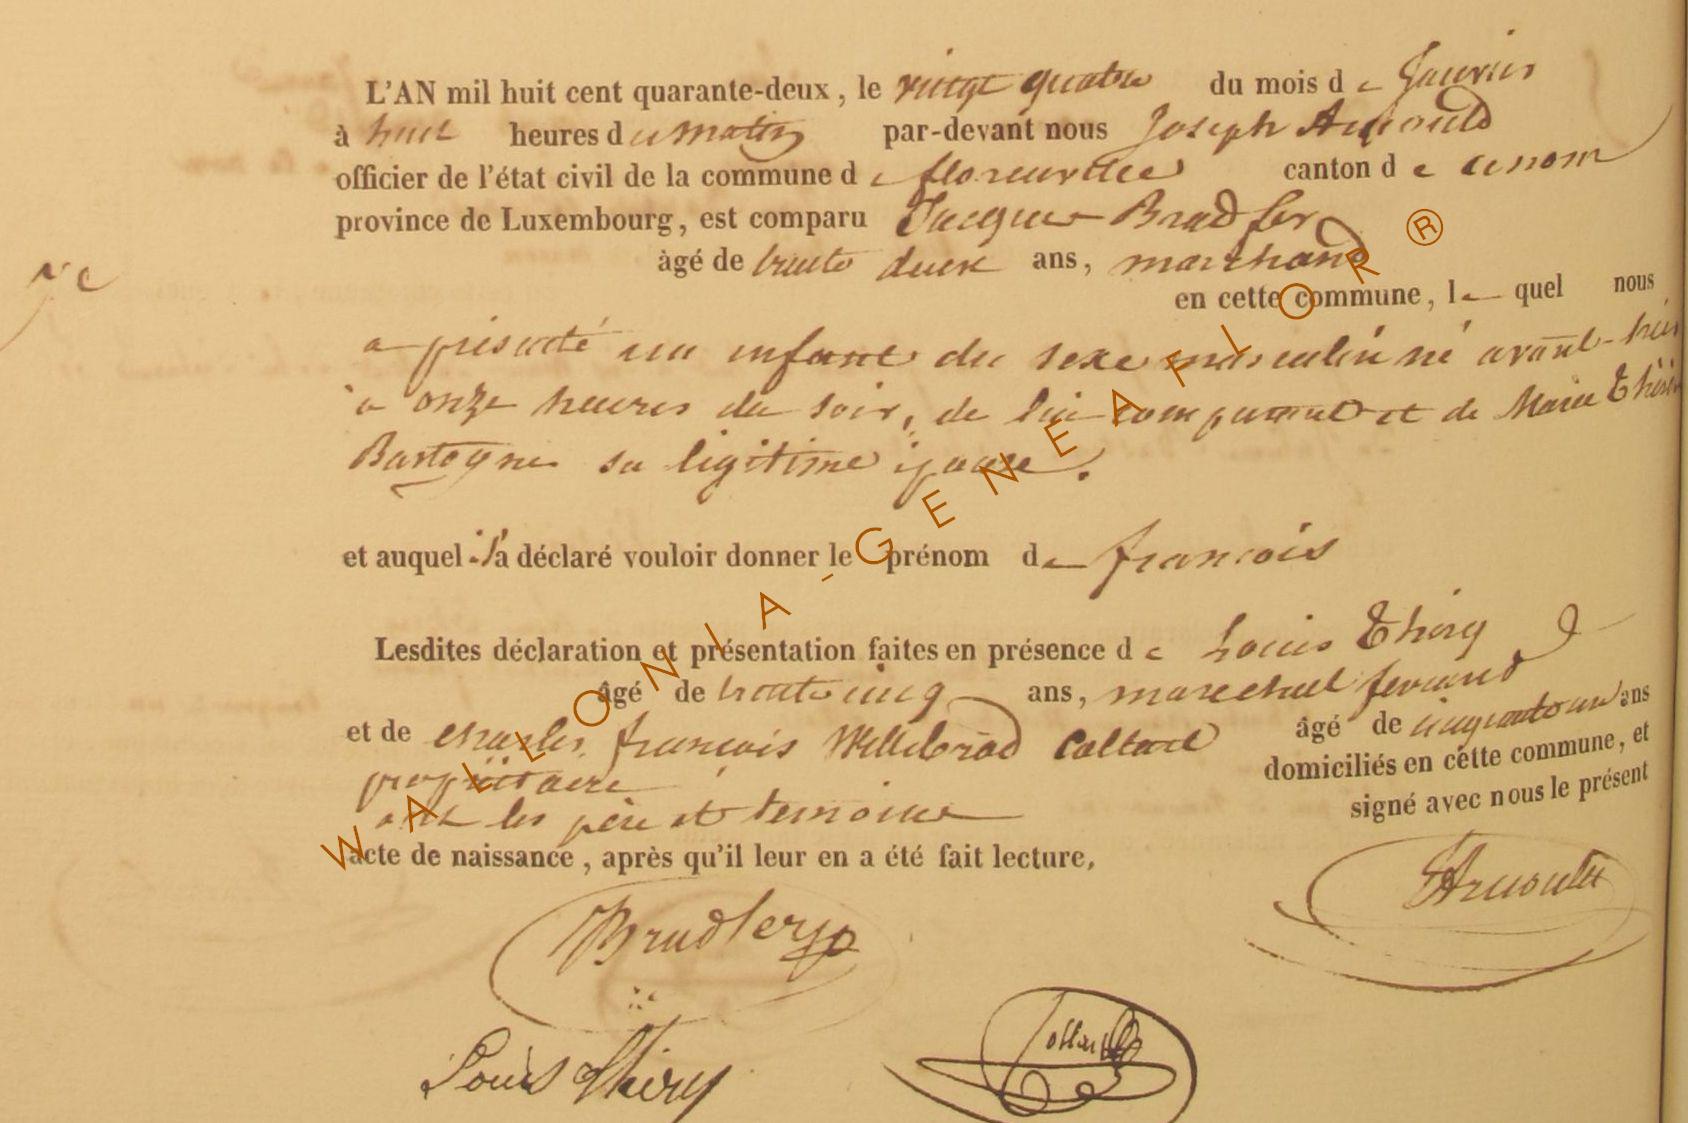 L'AN mil huit cent quarante-deux, le vingt quatre du mois de Janvier
à huit heures du matin par-devant nous Joseph Arnould
officier de l'état civil de la commune de florenville canton de ce nom
province de Luxembourg, est comparu Jacques Bradfer
àgé de trente deux ans, marchand
en cette commune, lequel nous
a présenté un enfant du sexe masculin né avant-hier
à onze heures du soir, de lui comparant et de Marie Thérèse
Bastogne sa légitime épouse.
et auquel il a déclaré vouloir donner le prénom de françois
Lesdites déclaration et présentation faites en présence de Louis Thiry
âgé de trente cinq ans, marechal ferrand
et de charles françois Willebrod Collard âgé de cinquante un ans
propriétaire domiciliés en cette commune, et
ont les père et temoins signé avec nous le présent
acte de naissance, après qu'il leur en a été fait lecture,
Bradfer JArnould
Louis Thiry Collard
WALLONIA-GENEAFLOR®